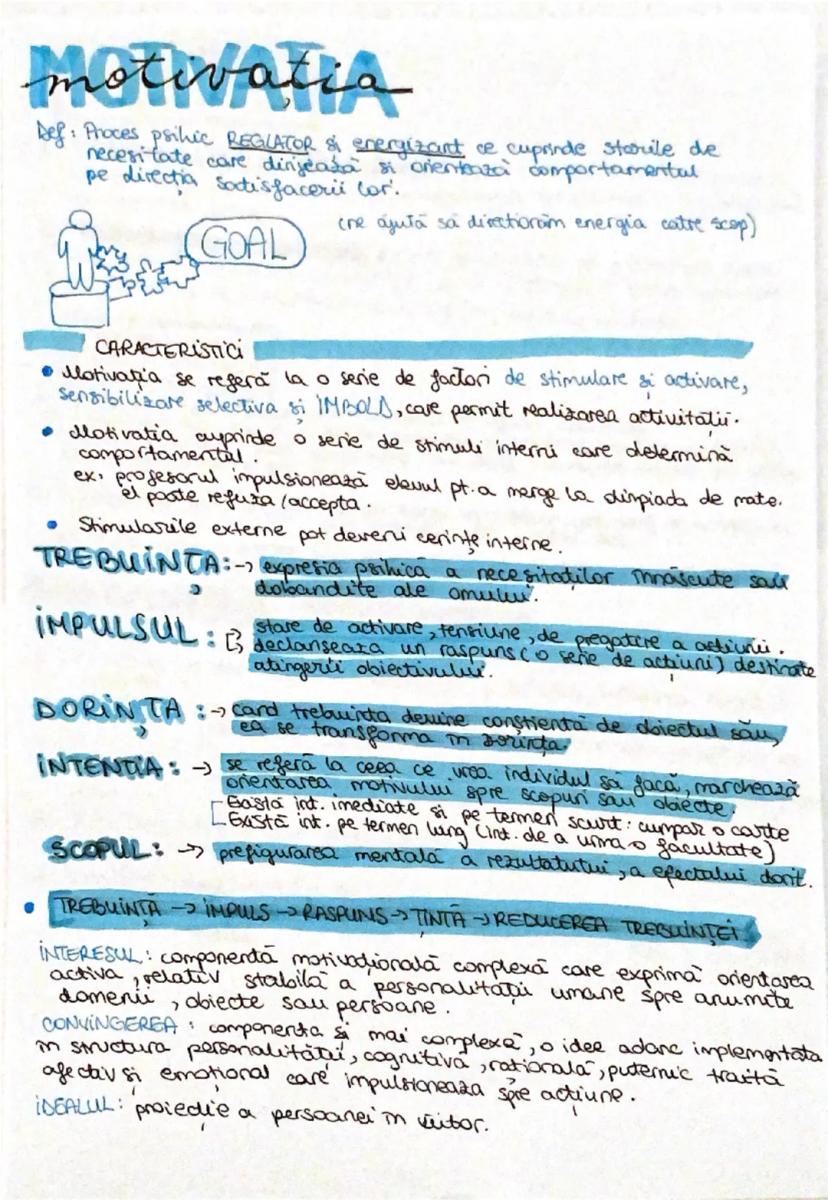 MOTIVAȚIA
motivația
Def: Proces psihic REGLATOR și energizant ce cuprinde stările de
necesitate care dirijează și orientează comportamentul
pe direcția satisfacerii lor.
(ne ajută să direcționăm energia către scop)
GOAL
CARACTERISTICI
• Motivația se referă la o serie de factori de stimulare și activare,
sensibilizare selectiva și IMBOLD, care permit realizarea activității.
• Motivatia cuprinde o serie de stimuli interni care determină
comportamentul.
ex. profesorul impulsionează elevul pt. a merge la olimpiada de mate.
el poate refuza/accepta.
• Stimulările externe pot deveni cerințe interne.
TREBUINȚA: → expresia psihică a necesitaților înnăscute sau
dobandite ale omului.
IMPULSUL: stare de activare, tensiune, de pregatire a acțiunii.
declanseaza un raspuns (o serie de acțiuni) destinate
atingerii obiectivului.
DORINȚA: → cand trebuinta devine conștientă de obiectul său,
ea se transforma în dorința.
INTENTIA: → se referă la ceea ce vrea individul să facă, marchează
orientarea motivului spre scopuri sau obiecte.
Există int. imediate si pe termen scurt: cumpar o carte
Există int. pe termen lung (int. de a urma o facultate)
SCOPUL: → prefigurarea mentală a rezultatului, a efectului dorit.
• TREBUINȚĂ → IMPULS → RASPUNS → ȚINTĂ → REDUCEREA TREBUINȚEI
INTERESUL: componentă motivațională complexă care exprimă orientarea
activa, relativ stabilă a personalității umane spre anumite
domenii, obiecte sau persoane.
CONVINGEREA: componenta și mai complexă, o idee adanc implementata
în structura personalității, cognitivă, rațională, puternic traită
afectiv și emoțional care impulsioneaza spre acțiune.
IDEALUL: proiecție a persoanei în viitor.